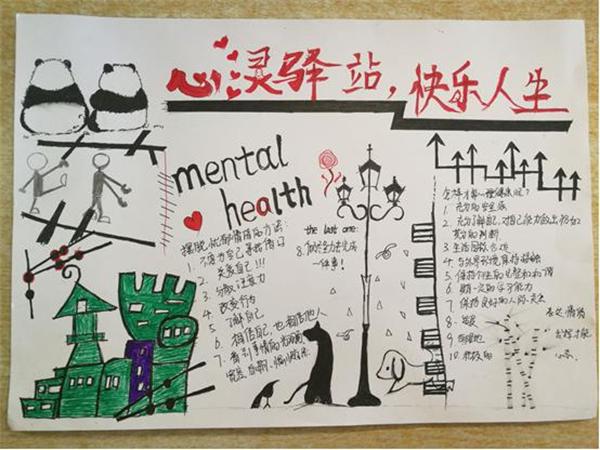 心灵驿站，快乐人生
mental
health
摆脱忧郁情绪的方法：
1. 不要为自己寻找借口
2. 关爱自己!!!
3. 分散注意力
4. 改变行为
5. 了解自己
6. 相信自己，也相信他人
7. 看到事情的光明面
the last one:
8. 用尽全力去完成
一件事！
怎样才算心理健康呢？
1. 充分的安全感
2. 充分了解自己，对自己的能力做出恰如
其分的判断
3. 生活目标合理
4. 与外界环境保持接触
5. 保持个性的完整和和谐
6. 具一定的学习能力
7. 保持良好的人际关系
8.
9.
10.